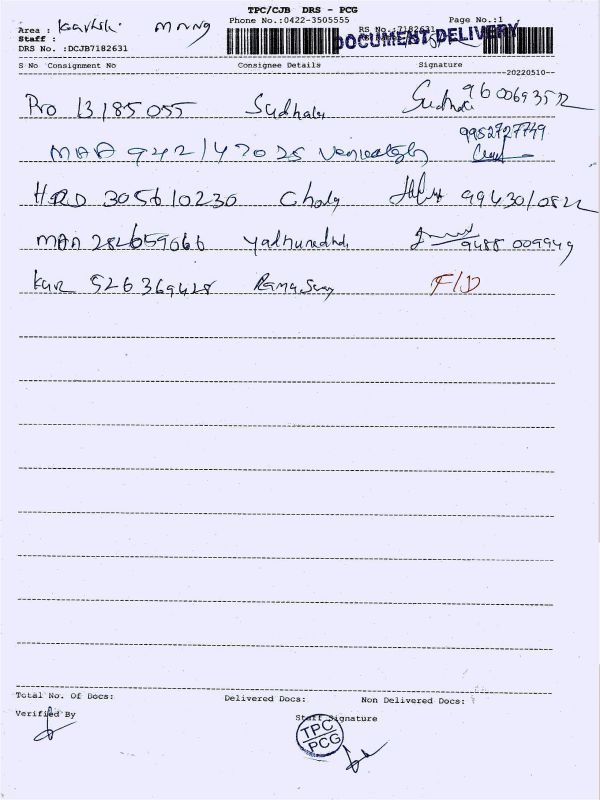 TPC/CJB DRS - PCG
Area : Karthik MRNG Phone No.:0422-3505555 Page No.:1
Staff : RS No.:7182631 DOCUMENT DELIVERY
DRS No. :DCJB7182631
S No Consignment No Consignee Details Signature
--20220510--
Pro 13185055 Sudhak 9600693532
MAA 942147025 9952727749
HRD 305610230 9943010822
MAA 282659066 9488 009949
Kur 526369428 Ramasamy F/D
Total No. Of Docs: Delivered Docs: Non Delivered Docs:
Verified By Staff Signature
TPC
PCG